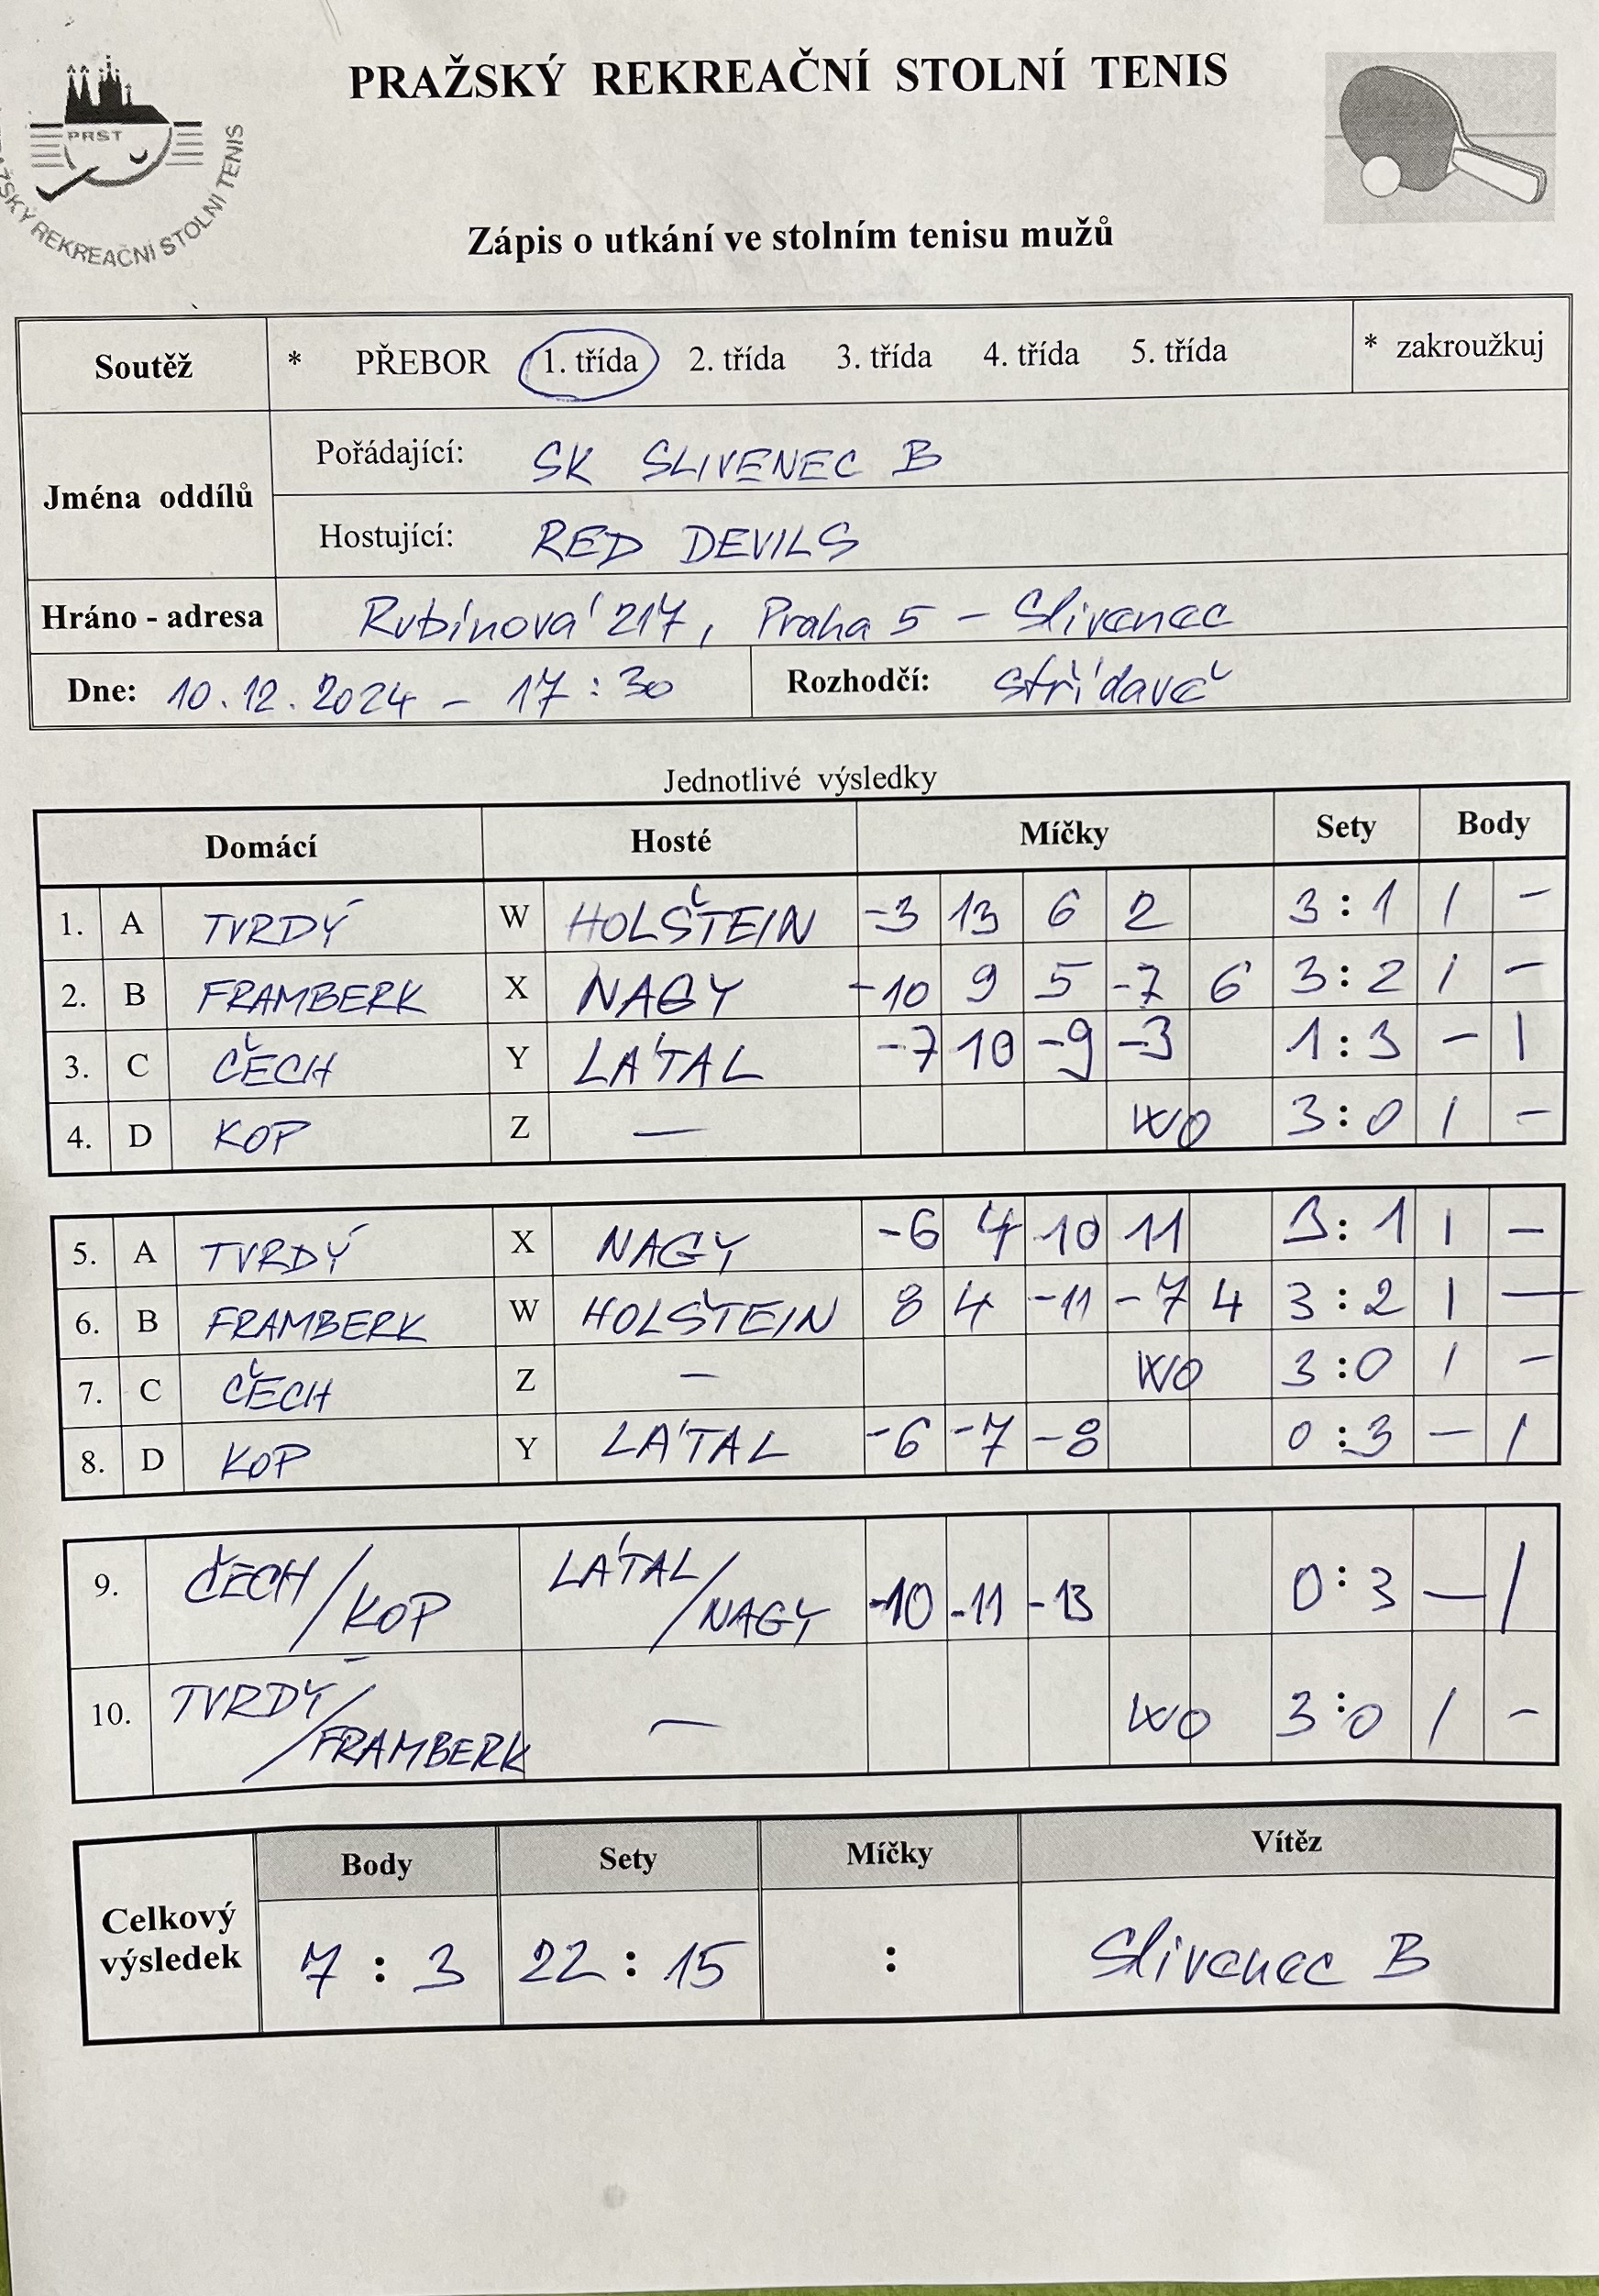 PRAŽSKÝ REKREAČNÍ STOLNÍ TENIS
PRST
PRAŽSKÝ REKREAČNÍ STOLNÍ TENIS
Zápis o utkání ve stolním tenisu mužů
Soutěž * PŘEBOR 1. třída 2. třída 3. třída 4. třída 5. třída * zakroužkuj
Jména oddílů
Pořádající: SK SLIVENEC B
Hostující: RED DEVILS
Hráno - adresa Rubínová 217, Praha 5 - Slivenec
Dne: 10.12.2024 - 17:30 Rozhodčí: střídavě
Jednotlivé výsledky
Domácí Hosté Míčky Sety Body
1. A TVRDÝ W HOLŠTEIN -3 13 6 2 3:1 1 -
2. B FRAMBERK X NAGY -10 9 5 -7 6 3:2 1 -
3. C ČECH Y LÁTAL -7 10 -9 -3 1:3 - 1
4. D KOP Z - WO 3:0 1 -
5. A TVRDÝ X NAGY -6 4 10 11 3:1 1 -
6. B FRAMBERK W HOLŠTEIN 8 4 -11 -7 4 3:2 1 -
7. C ČECH Z - WO 3:0 1 -
8. D KOP Y LÁTAL -6 -7 -8 0:3 - 1
9. ČECH/KOP LÁTAL/NAGY -10 -11 -13 0:3 - 1
10. TVRDÝ/FRAMBERK - WO 3:0 1 -
Celkový výsledek
Body Sety Míčky Vítěz
7:3 22:15 : Slivenec B